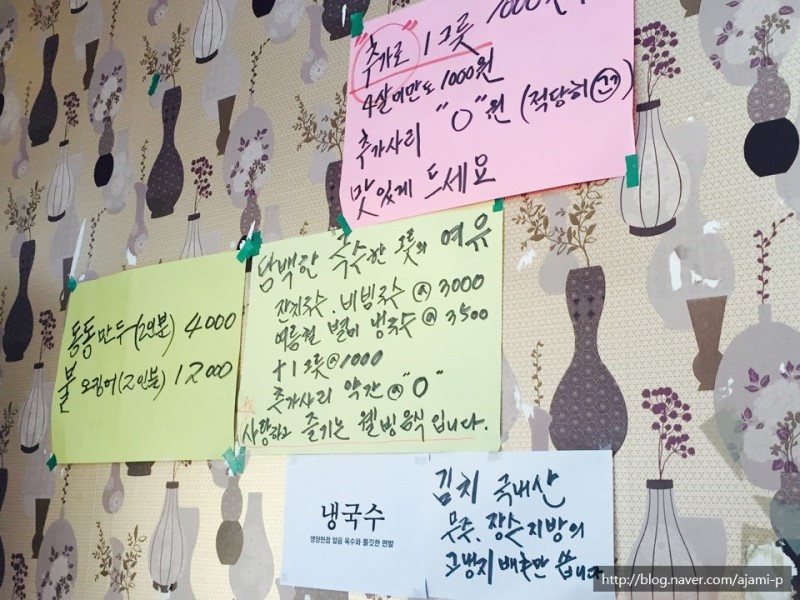 "추가로" 1그릇 1000원
4살미만도 1000원
추가사리 "0"원 (적당히
맛있게 드세요
담백한 국수한 그릇의 여유
잔치국수. 비빔국수 @ 3000
여름철 별미 냉국수 @ 3500
+1그릇@1000
추가사리 약간@"0"
사랑하고 즐기는 웰빙음식입니다.
통통만두(2인분) 4000
불오징어(2인분) 12000
김치 국내산
무주, 장수지방의
고랭지배추만 씁니다
냉국수
영양만점 얼음 육수와 쫄깃한 면발
http://blog.naver.com/ajami-p